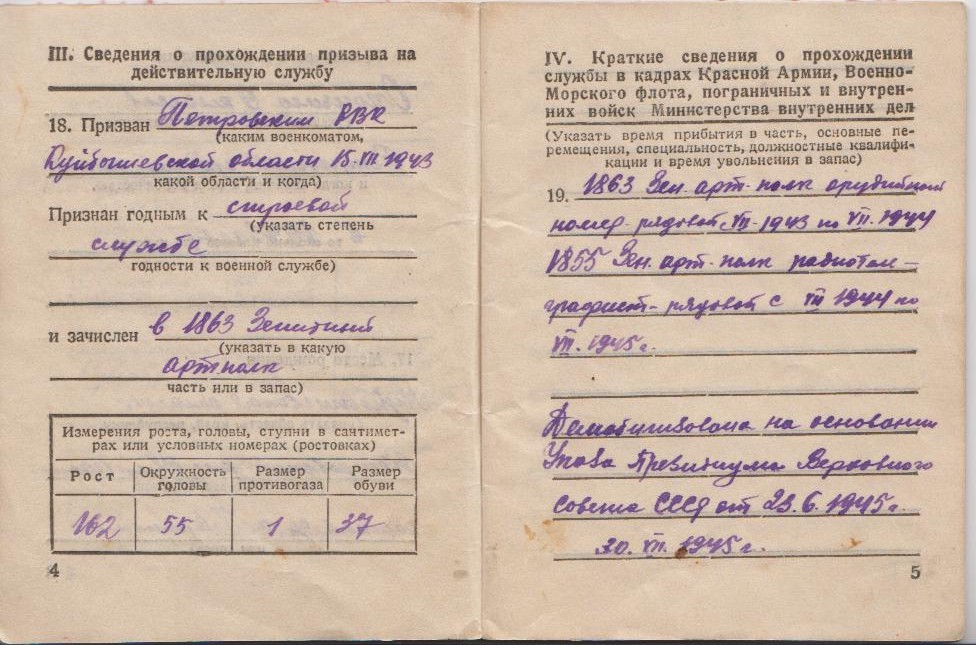 III. Сведения о прохождении призыва на
действительную службу
18. Призван Петровским РВК
(каким военкоматом,
Куйбышевской области 15.III 1943
какой области и когда)
Признан годным к строевой
(указать степень
службе
годности к военной службе)
и зачислен в 1863 Зенитный
(указать в какую
артполк
часть или в запас)
Измерения роста, головы, ступни в сантимет-
рах или условных номерах (ростовках)
Рост Окружность головы Размер противогаза Размер обуви
162 55 1 37
4
IV. Краткие сведения о прохождении
службы в кадрах Красной Армии, Военно-
Морского флота, пограничных и внутрен-
них войск Министерства внутренних дел
(Указать время прибытия в часть, основные пе-
ремещения, специальность, должностные квалифи-
кации и время увольнения в запас)
19. 1863 Зен. арт. полк орудийный
номер-рядовой VII-1943 по VII.1944
1855 Зен. арт. полк радиотеле-
графист-рядовой с VII 1944 по
VII.1945г.
Демобилизована на основании
Указа Президиума Верховного
Совета СССР от 23.6.1945г.
30. VII. 1945г.
5